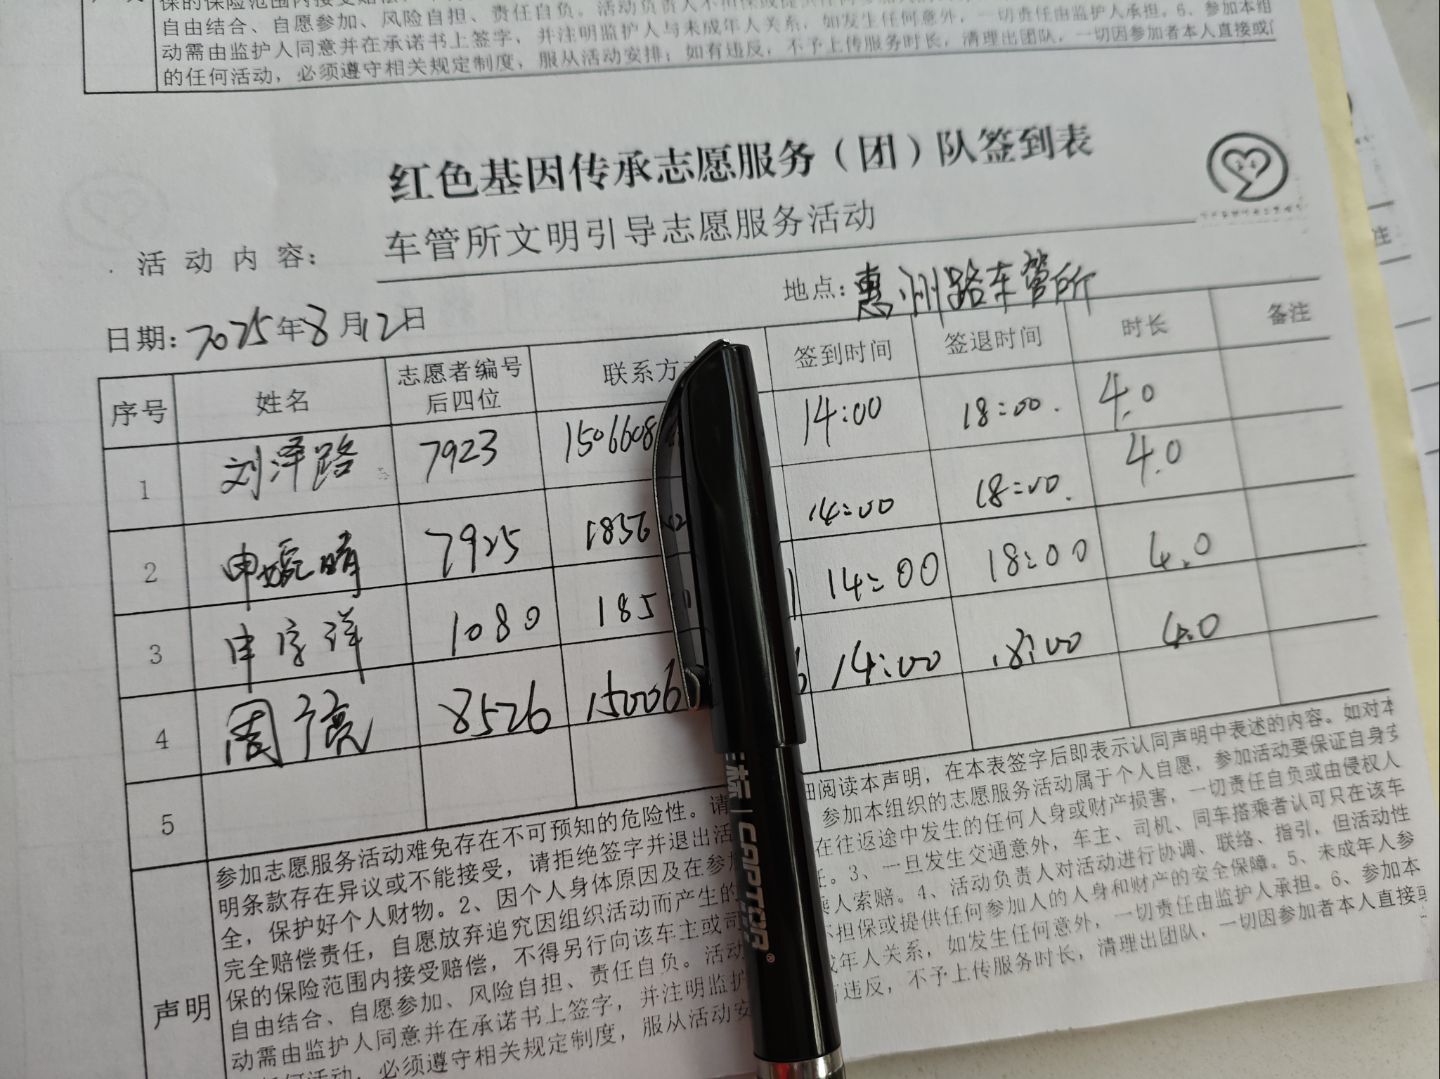 保的保险范围内接受赔偿
自由结合、自愿参加、风险自担、责任自负。活动负责人不担保或提供任何参加人的
动需由监护人同意并在承诺书上签字，并注明监护人与未成年人关系，如发生任何意外，一切责任由监护人承担。6、参加本组
的任何活动，必须遵守相关规定制度，服从活动安排；如有违反，不予上传服务时长，清理出团队，一切因参加者本人直接或
红色基因传承志愿服务（团）队签到表
活动内容： 车管所文明引导志愿服务活动
日期：2025年8月12日 地点：惠州路车管所
序号 姓名 志愿者编号后四位 联系方 签到时间 签退时间 时长 备注
1 刘泽路 7923 1506608 14:00 18:00. 4.0
2 申 晴 7925 1856 14:00 18:00. 4.0
3 申 洋 1080 185 14:00 18:00 4.0
4 周 亮 8526 15006 6 14:00 18:00 4.0
5
声明
参加志愿服务活动难免存在不可预知的危险性。请 细阅读本声明，在本表签字后即表示认同声明中表述的内容。如对本
明条款存在异议或不能接受，请拒绝签字并退出活 参加本组织的志愿服务活动属于个人自愿，参加活动要保证自身安
全，保护好个人财物。2、因个人身体原因及在参加 在往返途中发生的任何人身或财产损害，一切责任自负或由侵权人
完全赔偿责任，自愿放弃追究因组织活动而产生的 任。3、一旦发生交通意外，车主、司机、同车搭乘者认可只在该车
保的保险范围内接受赔偿，不得另行向该车主或司 乘人索赔。4、活动负责人对活动进行协调、联络、指引，但活动性
自由结合、自愿参加、风险自担、责任自负。活动 不担保或提供任何参加人的人身和财产的安全保障。5、未成年人参
动需由监护人同意并在承诺书上签字，并注明监护 成年人关系，如发生任何意外，一切责任由监护人承担。6、参加本
任何活动，必须遵守相关规定制度，服从活动安 有违反，不予上传服务时长，清理出团队，一切因参加者本人直接或
标 CAPTOR®
注